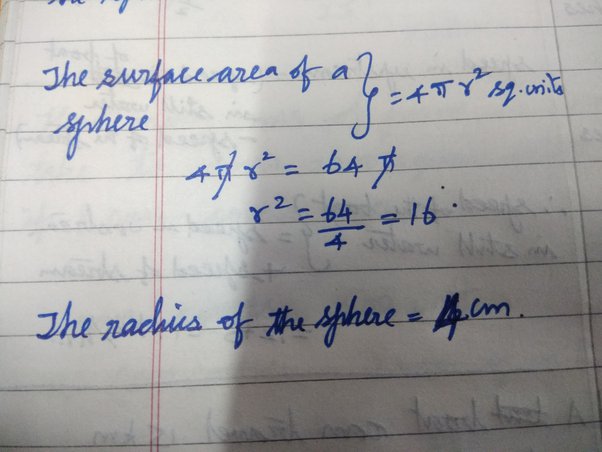 The surface area of a } = 4πr² sq.units
sphere
4πr² = 64π
r² = 64/4 = 16
The radius of the sphere = 4 cm.